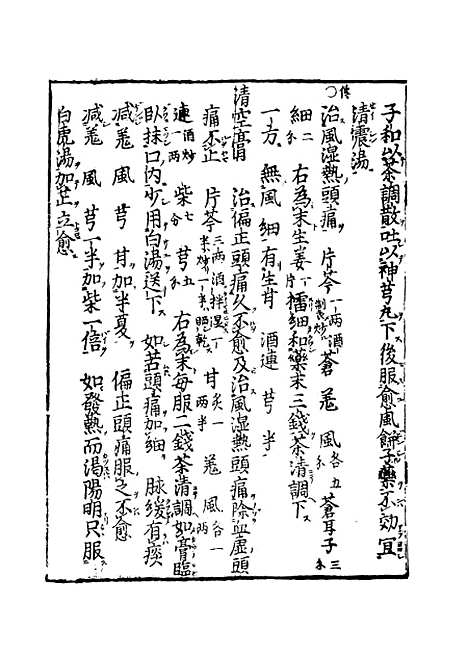 子和以茶調散吐以神芎丸下後服愈風餅子藥不効宜
清震湯
治風湿熱頭痛 片芩一両酒製炒 蒼 羗 風各五分 蒼耳子三分
細二分 右為末生姜一片擂細和藥末三錢茶清調下
一方 無風細有生甘 酒連 芎 半
清空膏 治偏正頭痛久不愈及治風湿熱頭痛除血虚頭
痛不止 片芩三両酒拌湿一半炒一半晒乾 甘炙一両半 羗 風各一両
連酒炒一両 柴七分 芎五分 右為末每服二錢茶清調如膏臨
臥抹口内少用白湯送下 如苦頭痛加細 脉緩有痰
減羗 風 芎 甘加半夏 偏正頭痛服之不愈
減羗 風 芎一半加柴一倍 如發熱而渇陽明只服
白虎湯加芷立愈